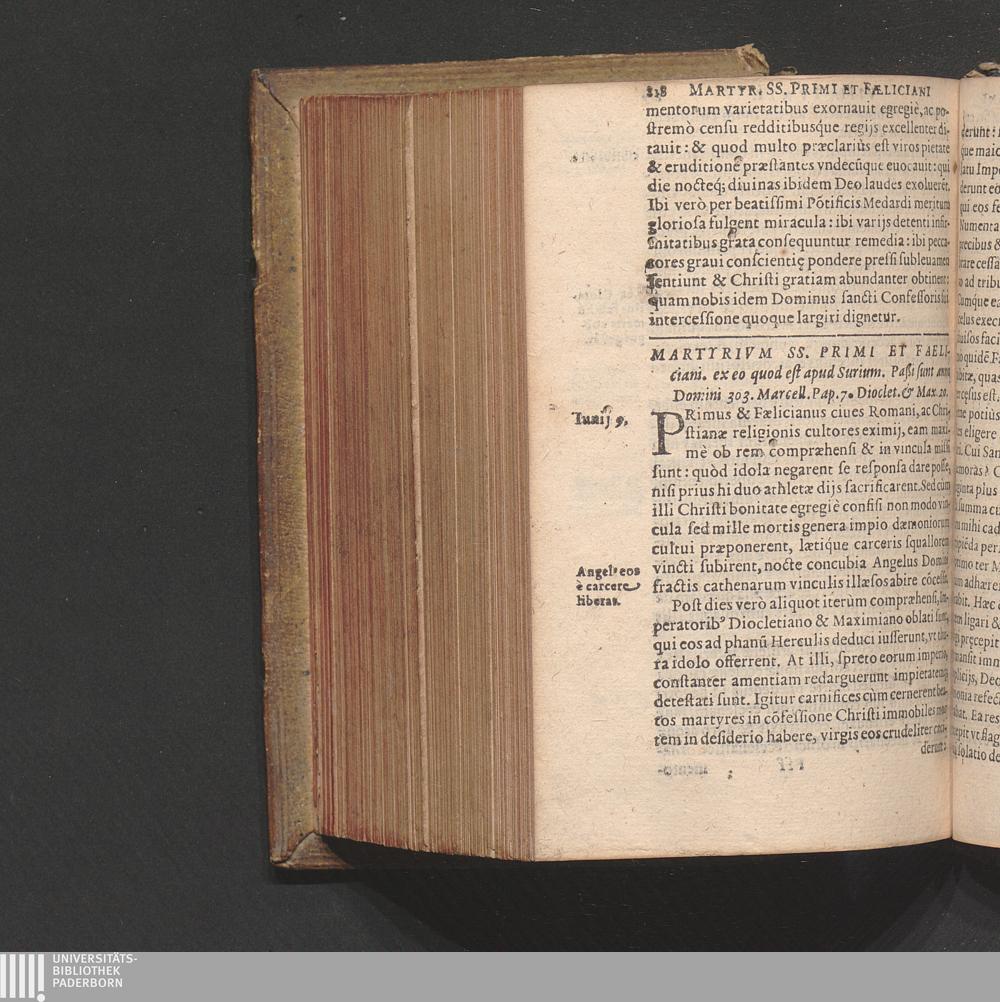 MARTYR. SS. PRIMI ET FÆLICIANI
mentorum varietatibus exornauit egregiè, ac po-
ſtremò cenſu redditibuſque regijs excellenter di-
tauit: & quod multo præclariùs eſt viros pietate
& eruditione præſtantes vndecūque euocauit: qui
die nocteq; diuinas ibidem Deo laudes exoluerēt.
Ibi verò per beatiſſimi Pōtificis Medardi meritum
glorioſa fulgent miracula: ibi varijs detenti infir-
mitatibus grata conſequuntur remedia: ibi pecca-
tores graui conſcientię pondere preſſi ſubleuamen
ſentiunt & Chriſti gratiam abundanter obtinent:
quam nobis idem Dominus ſancti Confeſſoris ſui
interceſſione quoque largiri dignetur.
MARTYRIVM SS. PRIMI ET FAELI-
ciani. ex eo quod eſt apud Surium. Paſſi ſunt anno
Domini 303. Marcell. Pap. 7. Dioclet. & Max. 20.
Iunij 9.
PRimus & Fælicianus ciues Romani, ac Chri-
ſtianæ religionis cultores eximij, eam maxi-
mè ob rem compræhenſi & in vincula miſſi
ſunt: quòd idola negarent ſe reſponſa dare poſſe,
niſi prius hi duo athletæ dijs ſacrificarent. Sed cùm
illi Chriſti bonitate egregiè confiſi non modo vin-
cula ſed mille mortis genera impio dæmoniorum
cultui præponerent, lætique carceris ſquallorem
vincti ſubirent, nocte concubia Angelus Domini
fractis cathenarum vinculis illæſos abire cōceſſit.
Angelꝰ eos
è carcere
liberat.
Poſt dies verò aliquot iterùm compræhenſi, Im-
peratoribꝰ Diocletiano & Maximiano oblati ſunt,
qui eos ad phanū Herculis deduci iuſſerunt, vt thu-
ra idolo offerrent. At illi, ſpreto eorum imperio,
conſtanter amentiam redarguerunt impietatemq;
deteſtati ſunt. Igitur carnifices cùm cernerent bea-
tos martyres in cōfeſſione Chriſti immobiles mor-
tem in deſiderio habere, virgis eos crudeliter
derunt:
UNIVERSITÄTS-
BIBLIOTHEK
PADERBORN